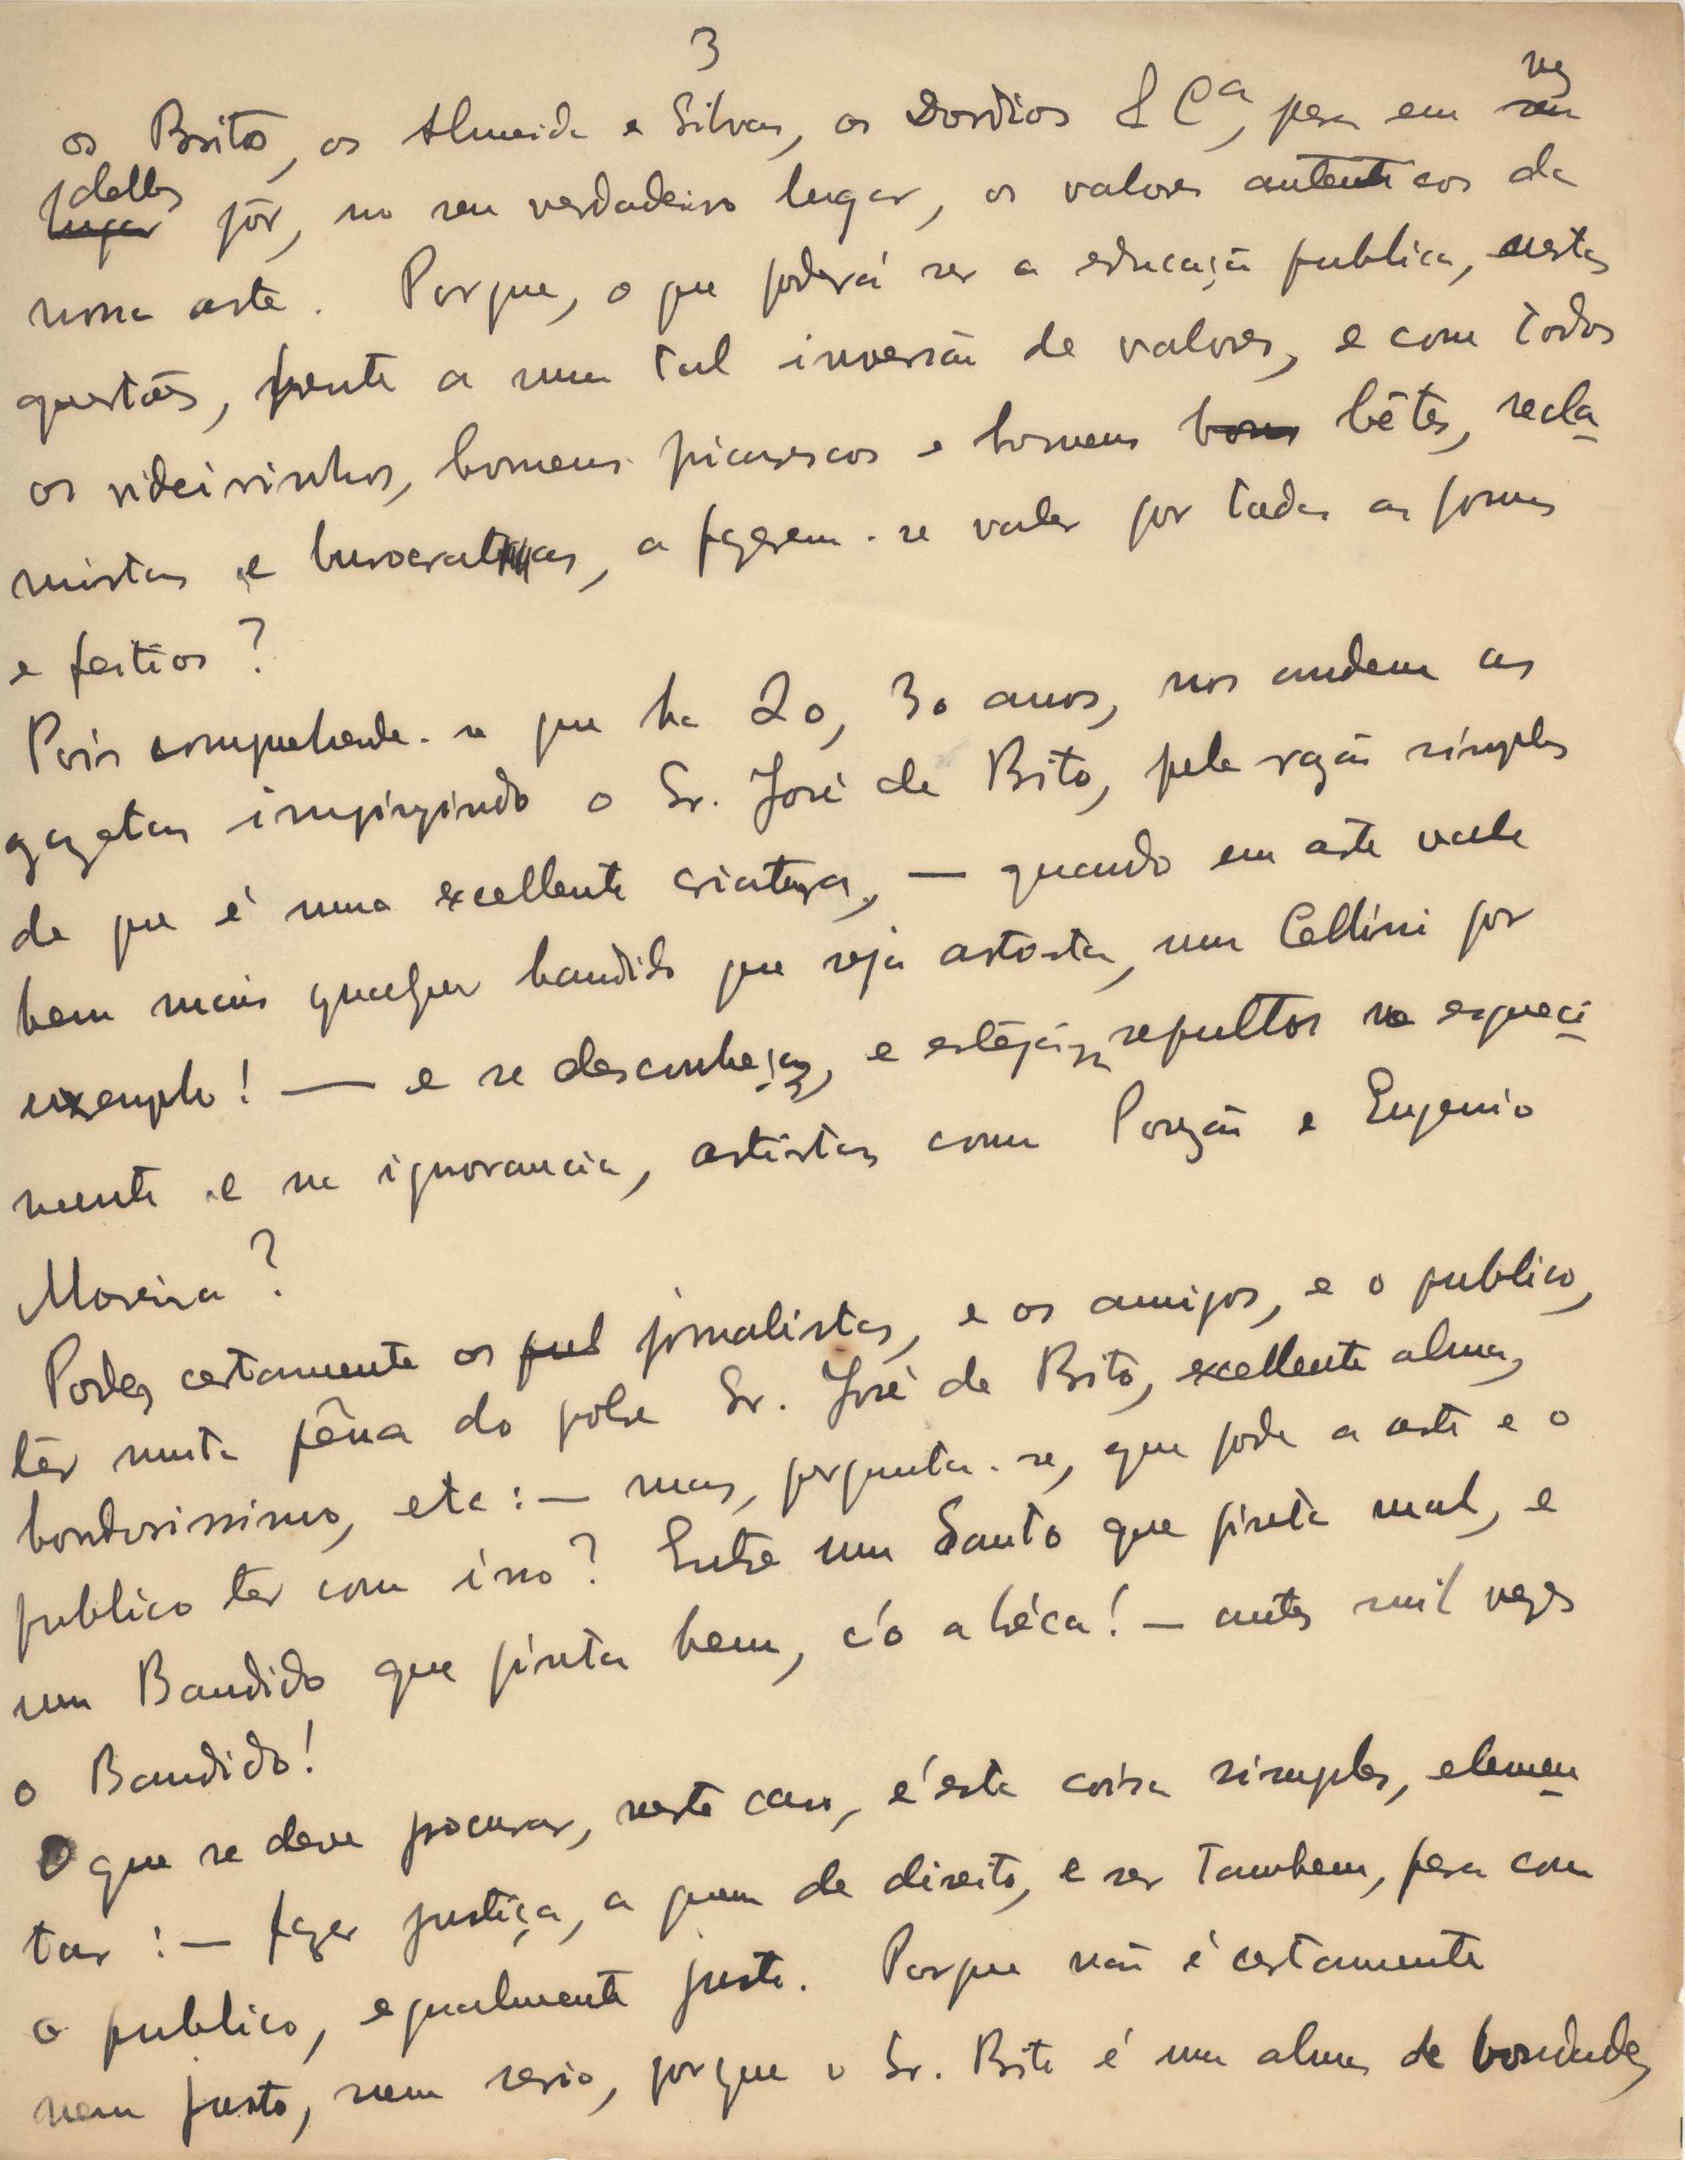 3
os Brito, os Almeida e Silvas, os Dordios & Cª, pera em vez
delles pôr, no seu verdadeiro lugar, os valores autenticos da
nossa arte. Porque, o que poderá ser a educação publica, nestas
questões, frente a uma tal inversão de valores, e com todos
os videirinhos, homens picarescos e homens bêtes, recla-
mistas e burocratas, a fazerem-se valer por todas as formas
e feitios?
Pois comprehende-se que ha 20, 30 anos, nos andem as
gazetas impingindo o Sr. José de Brito, pela razão simples
de que é uma excellente criatura, — quando em arte vale
bem mais qualquer bandido que seja artista, um Cellini por
exemplo! — e se desconheçam, e estejam sepultos no esqueci-
mento e na ignorancia, artistas como Pouzão e Eugenio
Moreira?
Podem certamente os jornalistas, e os amigos, e o publico,
têr muita pêna do pobre Sr. José de Brito, excellente alma,
bondosissimo, etc: — mas, pergunta-se, que pode a arte e o
publico ter com isso? Entre um Santo que pinta mal, e
um Bandido que pinta bem, c'o a bréca! — antes mil vezes
o Bandido!
O que se deve procurar, neste caso, é esta coisa simples, elemen-
tar: — fazer justiça, a quem de direito, e ser tambem, pera com
o publico, egualmente justo. Porque não é certamente
nem justo, nem serio, porque o Sr. Brito é uma alma de bondade,